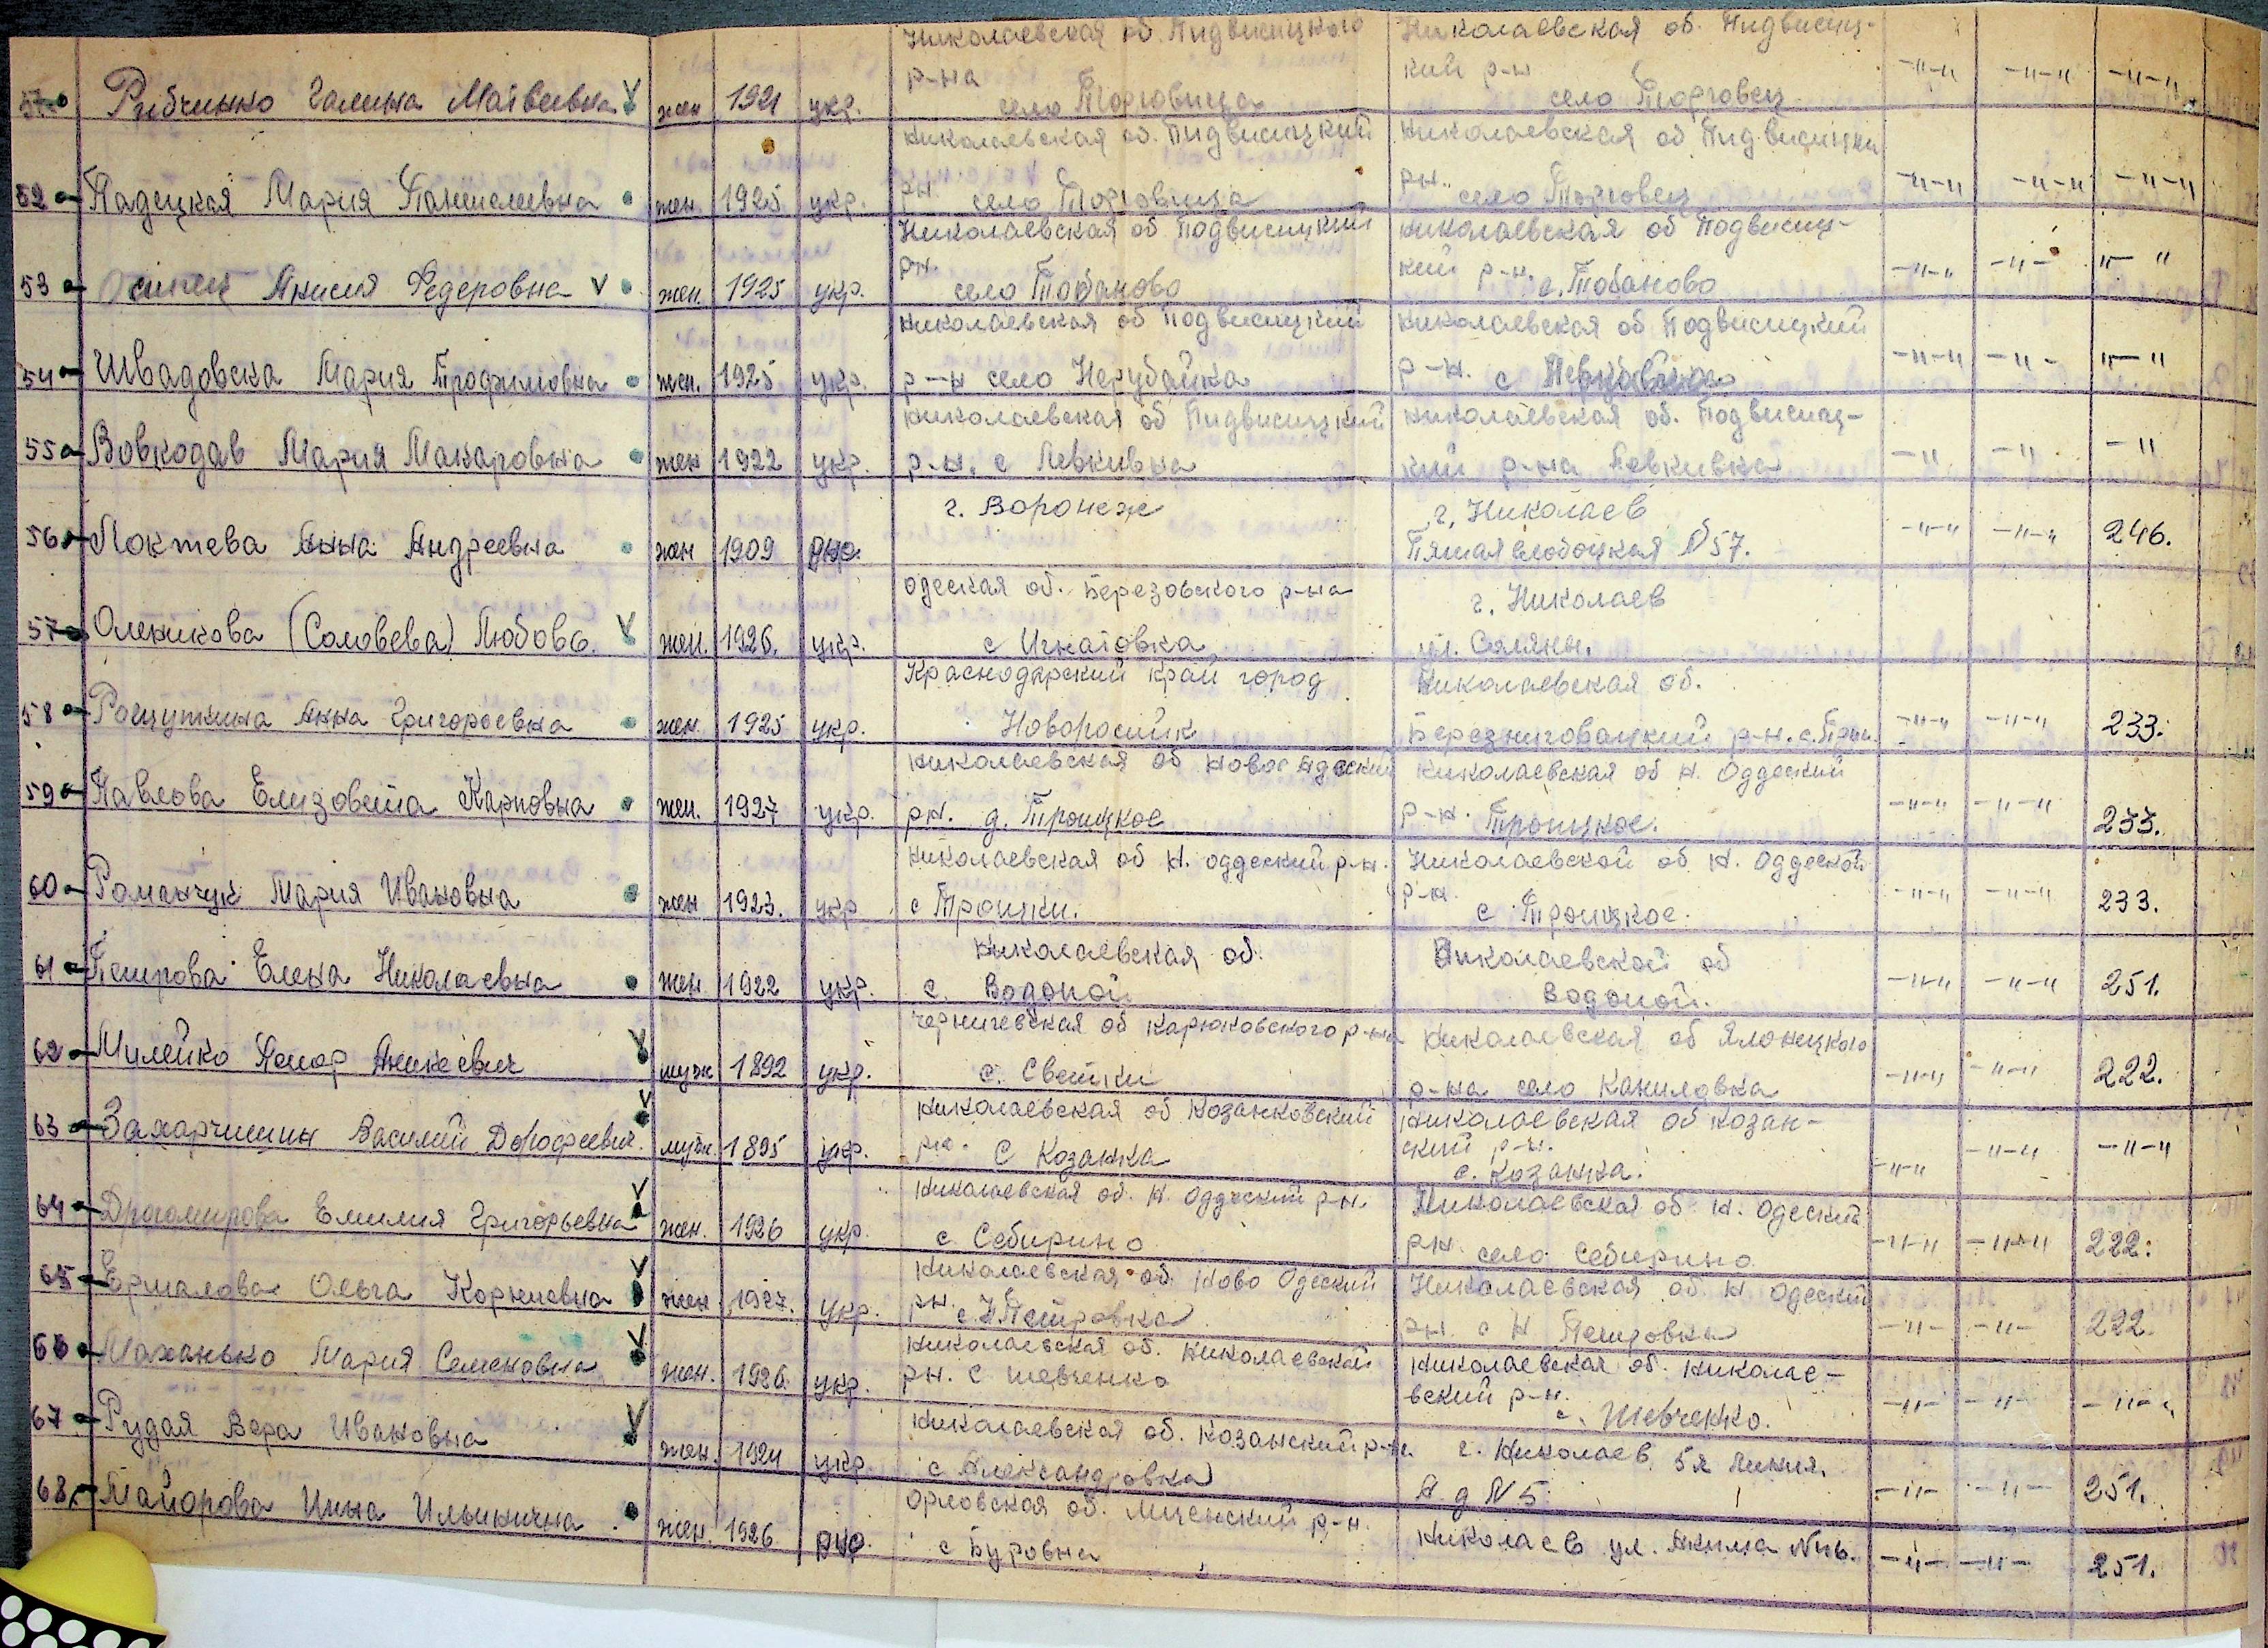 Николаевская об. Пидвисицкого Николаевская об. Пидвисиц-
р-на кий р-н
Рибчинко Галина Матвеевна V жен 1921 укр. село Торговица село Торговец -"-" -"-" -"-"
Николаевская об. Пидвисицкий Николаевская об Пидвисицкий
52 Падецкая Мария жен. 1925 укр. рн село Торговица рн. село Торговец -"-" -"-" -"-"
Николаевская об Подвисицкий Николаевская об Подвисиц-
рн. кий р-н.
53 Анисия Федеровна V жен. 1925 укр. село Тобаново с. Тобаново -"-" -"- "-"
Николаевская об Подвисицкий Николаевская об Подвисицкий
54 Швадовска Мария Трофимовна жен. 1925 укр. р-н село Нерубайка р-н. с -"-" -"- "-"
Николаевская об Пидвисицкий Николаевская об. Подвисиц-
55 Вовкодав Мария Макаровна жен 1922 укр. р-н. с Левкивка кий р-на Левкивка -" -" -"
г. Воронеж г. Николаев
56 Локтева Анна Андреевна жен 1909 Пятая слобоцкая №57. -"-" -"-" 246.
одеская об. Березовского р-на г. Николаев
57 Оленикова (Соловева) Любовь. V жен. 1926. укр. с Игнатовка ул. Соляны.
Краснодарский край город Николаевская об.
58 Рощупкина Анна Григороевна жен. 1925 укр. Новоросийк Березниговацкий р-н. с. -"-" -"-" 233.
Николаевская об Новое Николаевская об Н. Оддеский
59 Павлова Елизовета Карповна жен. 1927 укр. рн. д. Троицкое р-н. Троицкое. -"-" -"-" 233.
Николаевская об Н. оддеский р-н. Николаевской об Н. Оддеской
р-н.
60 Романчук Мария Ивановна жен 1923. укр с Троицки. с Троицкое. -"-" -"-" 233.
Николаевская об. Николаевской об
61 Петрова Елена Николаевна жен. 1922 укр. с. Водопой Водопой. -"-" -"-" 251.
черниговская об Карюковского р-на Николаевская об Яланецкого
62 Милейко V муж 1892 укр. с. Светки р-на село Каниловка -"-" -"-" 222.
Николаевская об Козанковский Николаевская об Козан-
ский р-н.
63 Захарчишин Василий Дорофеевич. V муж. 1895 укр. рн. С Козанка с. Козанка. -"-" -"-" -"-"
Николаевская об. Н. Оддеский р-н. Николаевская об Н. Одеский
64 Драгомирова Емилия Григорьевна V жен. 1926 укр. с. Себирино рн. село Себирино -"-" -"-" 222.
Николаевская об. Ново Одеский Николаевская об Н Одеский
65 Ермалова Ольга Корниевна V жен 1927. укр. рн. с. Н Петровка рн. с Н Петровка -"- -"- 222.
Николаевская об. Николаевский Николаевская об. Николае-
вский р-н.
66 Маханько Мария Семеновна V жен. 1926. укр. рн. с Шевченко с. Шевченко. -"- -"- -"-"
67 Рудая Вера Ивановна V Николаевская об. Козанский р-н. г. Николаев 5я Линия.
жен. 1924 укр. с Александровка Н. д N 5. -"- -"- 251.
68. Майорова Инна Ильинична орловская об. Мценский р-н.
жен. 1926 рус. с Буровна Николаев ул. Акима №46. -"- -"- 251.